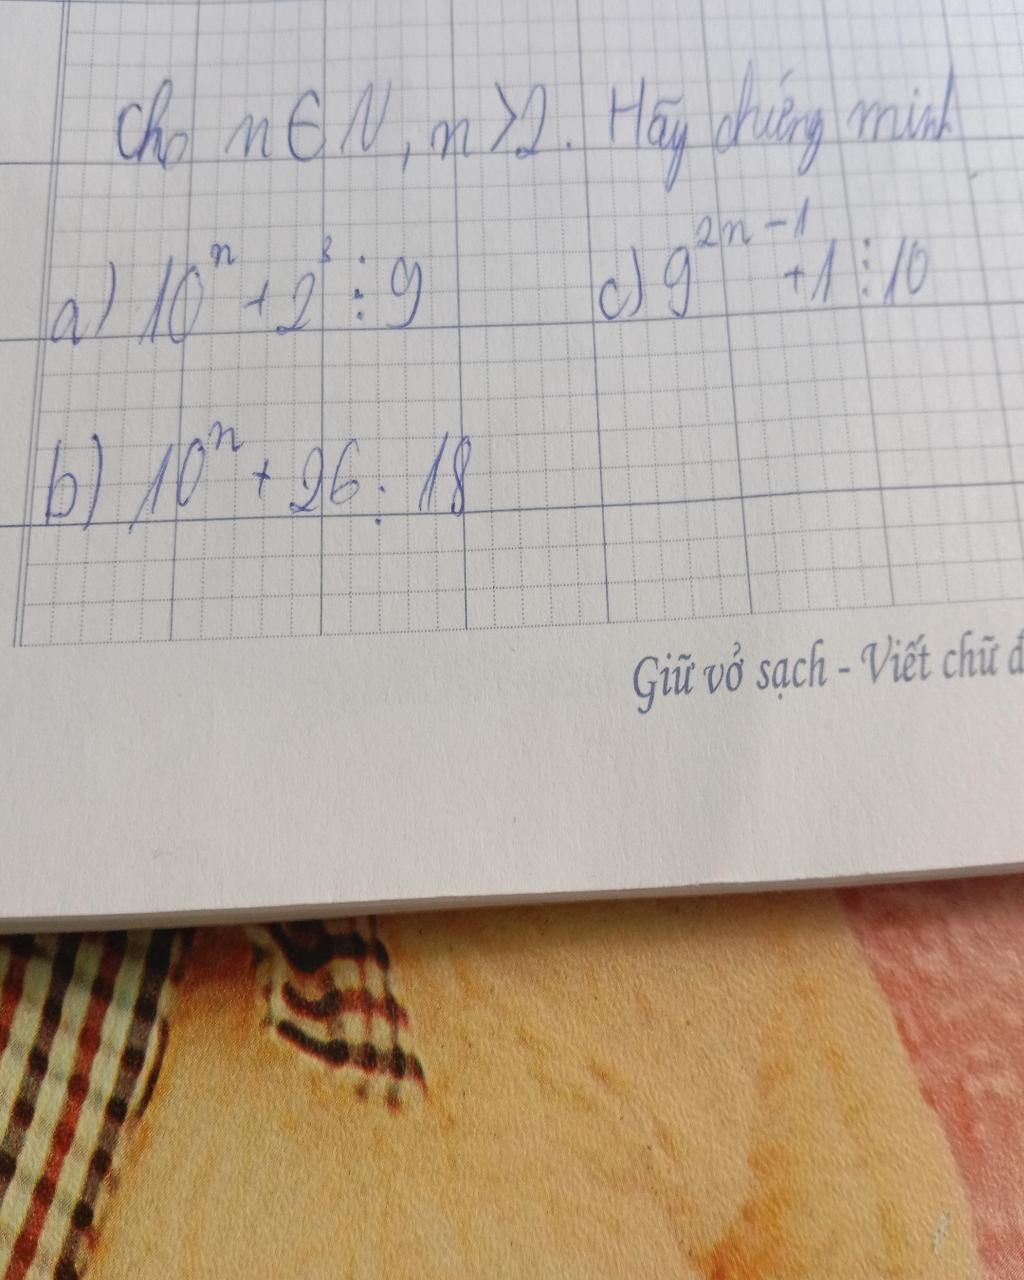 Cho n ∈ N, n > 2. Hãy chứng minh
a) 10ⁿ + 2³ ⋮ 9
c) 9²ⁿ⁻¹ + 1 ⋮ 10
b) 10ⁿ + 26 : 18
Giữ vở sạch - Viết chữ đ